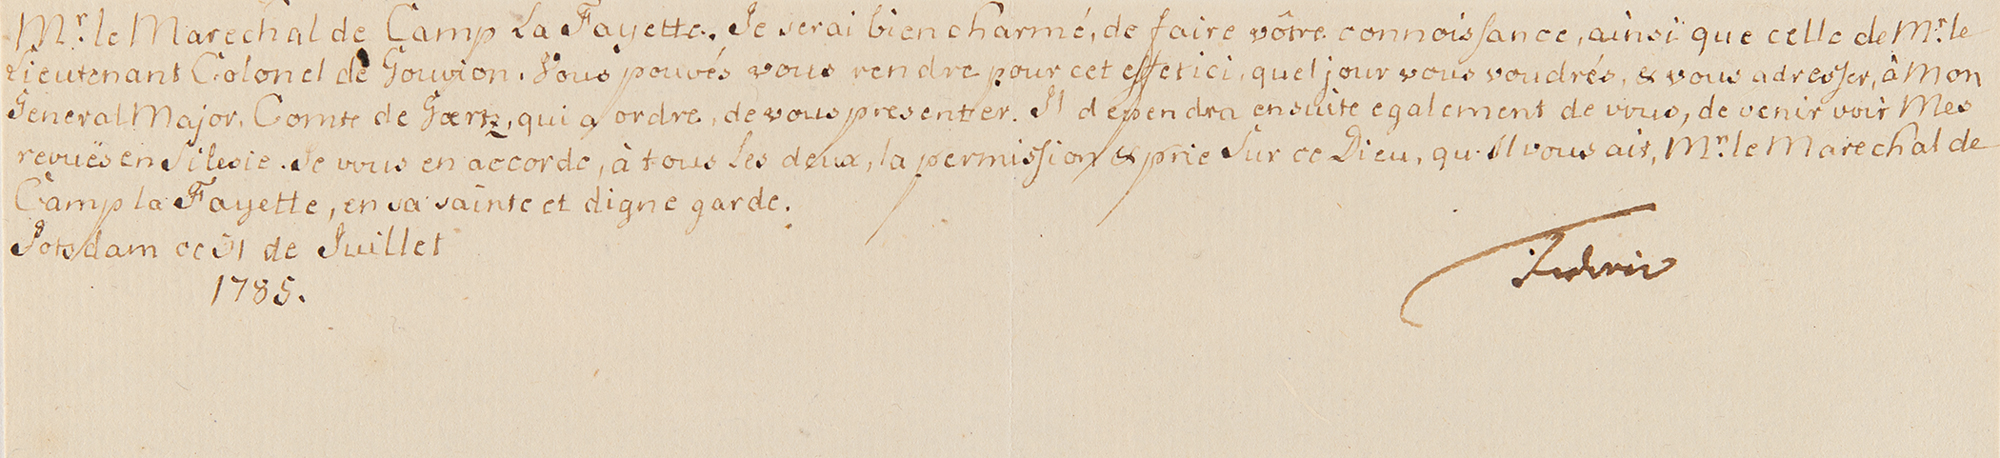 Mr. le Marechal de Camp La Fayette. Je serai bien charmé, de faire vôtre connoissance, ainsi que celle de Mr. le
Lieutenant Colonel de Gouvion. Vous pouvés vous rendre pour cet effet ici, quel jour vous voudrés, & vous adresser, à Mon
General Major, Comte de Goertz, qui a ordre, de vous presenter. Il dependra ensuite egalement de vous, de venir voir Mes
revuës en Silesie. Je vous en accorde, à tous les deux, la permission & prie sur ce Dieu, qu'Il vous ait, Mr. le Marechal de
Camp la Fayette, en sa sainte et digne garde.
Potsdam ce 31 de Juillet
1785.
Federic